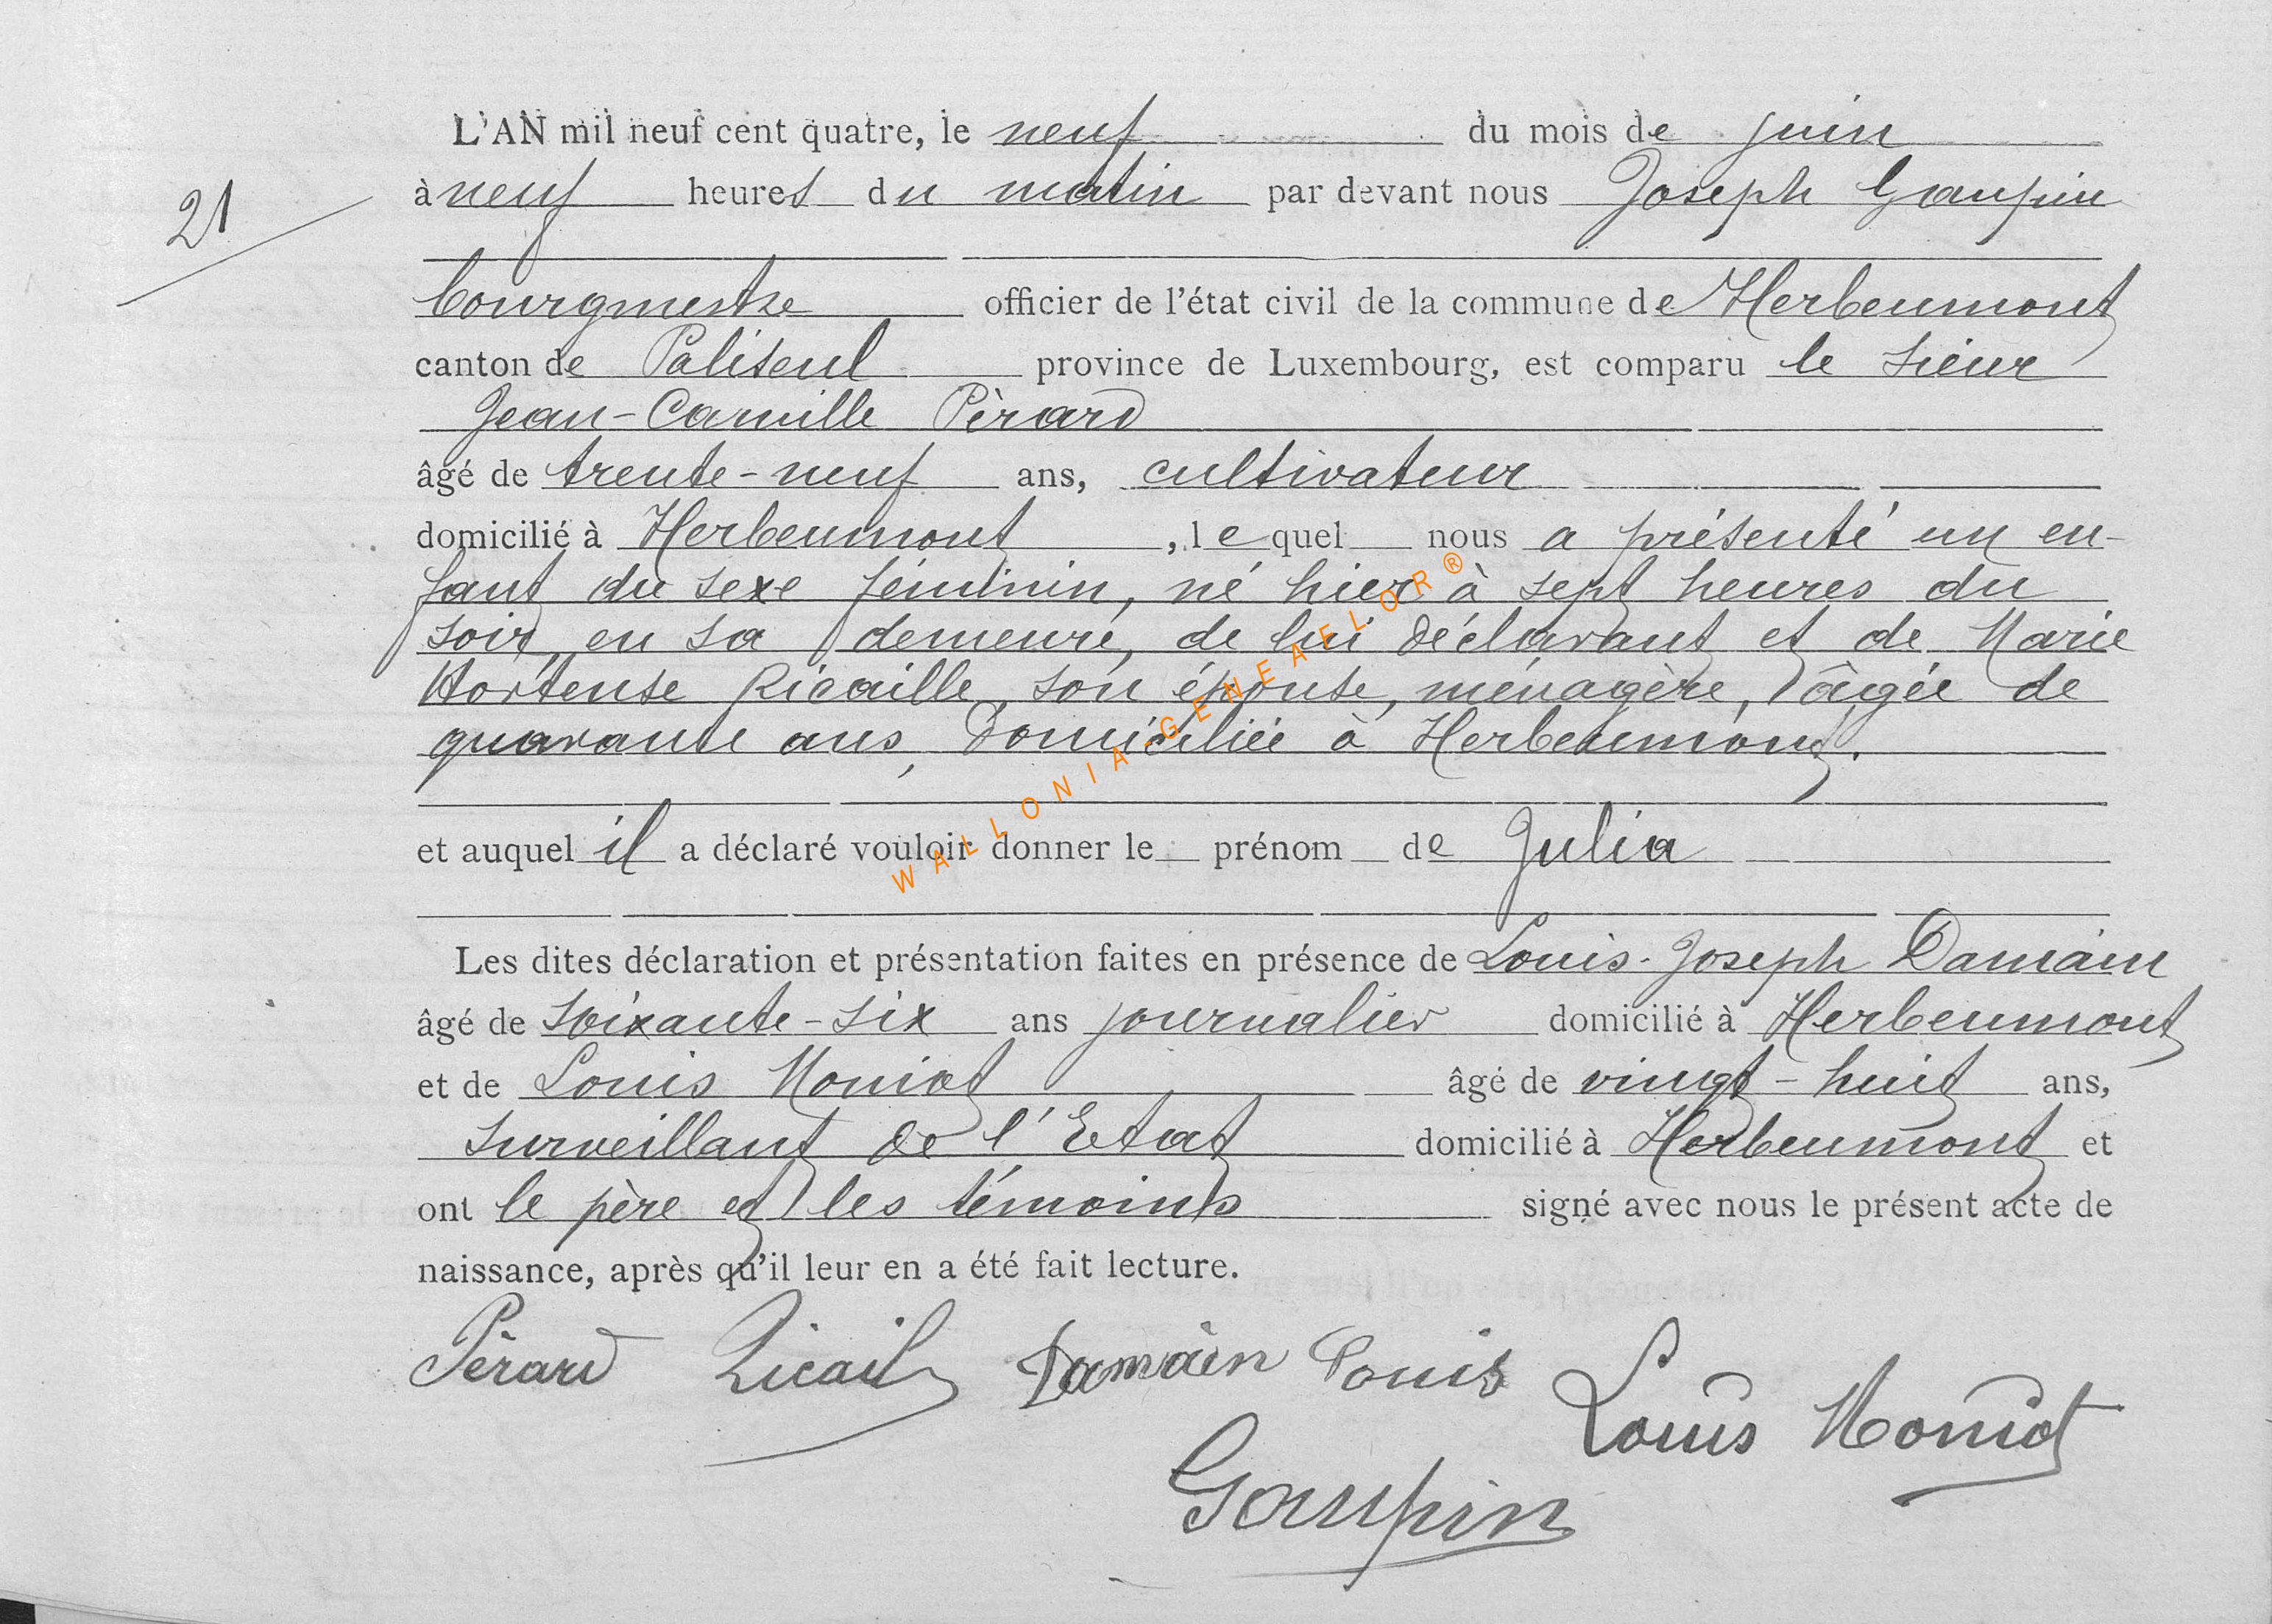 L'AN mil neuf cent quatre, le neuf du mois de juin
21
à neuf heures du matin par devant nous Joseph Gaupin
bourgmestre officier de l'état civil de la commune de Herbeumont
canton de Paliseul province de Luxembourg, est comparu le sieur
Jean-Camille Pèrard
âgé de trente-neuf ans, cultivateur
domicilié à Herbeumont, lequel nous a présenté un en-
fant du sexe féminin, né hier à sept heures du
soir, en sa demeure, de lui déclarant et de Marie
Hortense Ricaille, son épouse, ménagère, âgée de
quarante ans, domiciliée à Herbeumont.
et auquel il a déclaré vouloir donner le prénom de Julia
Les dites déclaration et présentation faites en présence de Louis-Joseph Damain
âgé de soixante-six ans journalier domicilié à Herbeumont
et de Louis Moniot âgé de vingt-huit ans,
surveillant de l'Etat domicilié à Herbeumont et
ont le père et les témoins signé avec nous le présent acte de
naissance, après qu'il leur en a été fait lecture.
Pèrard Ricail Damain Louis
Louis Moniot
Gaupin
WALLONIA-GENEAFLOR®